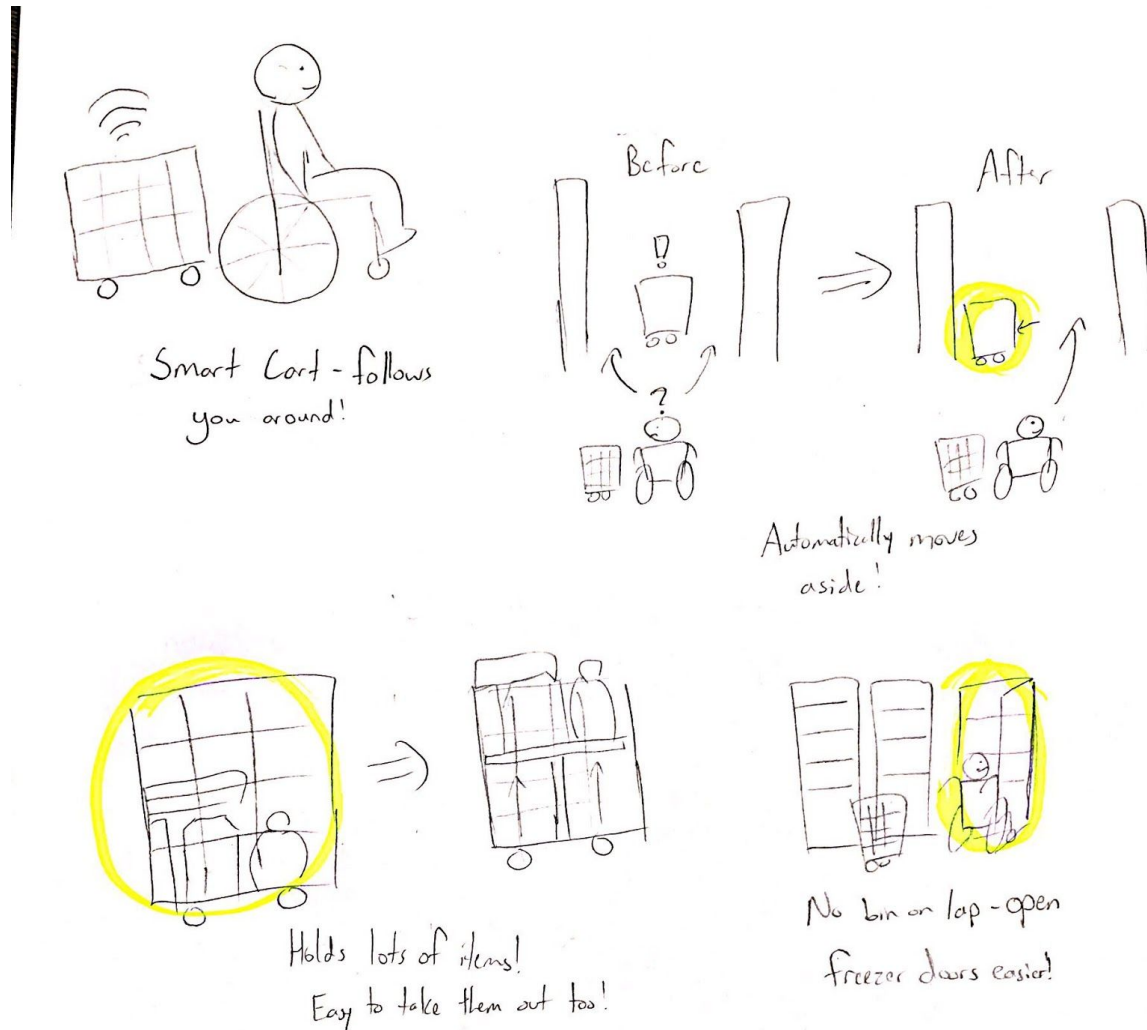 Smart Cart - follows
you around!
Before
After
!
?
Automatically moves
aside!
Holds lots of items!
Easy to take them out too!
No bin on lap - open
freezer doors easier!